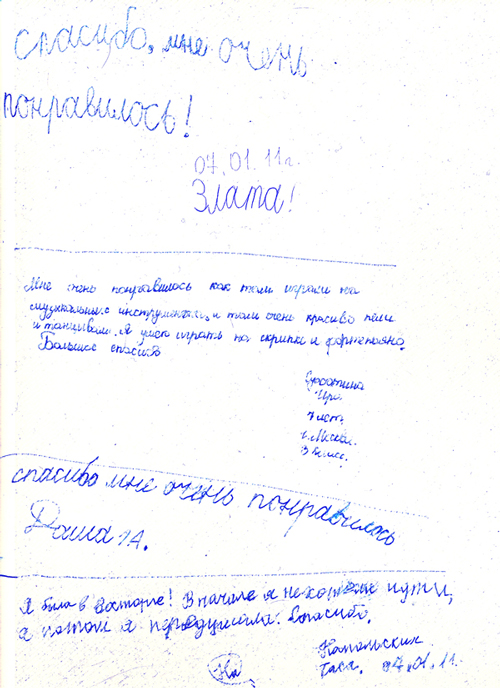 Спасибо, мне очень
понравилось!
07.01.11г.
Злата!
Мне очень понравилось как там играли на
музыкальных инструментах, и там очень красиво пели
и танцевали. Я умею играть на скрипке и фортепиано.
Большое спасибо
Ира
7 лет
спасибо мне очень понравилось
Даша
Я была в восторге! В начале я не хотела идти,
а потом я передумала. Спасибо.
07.01.11.